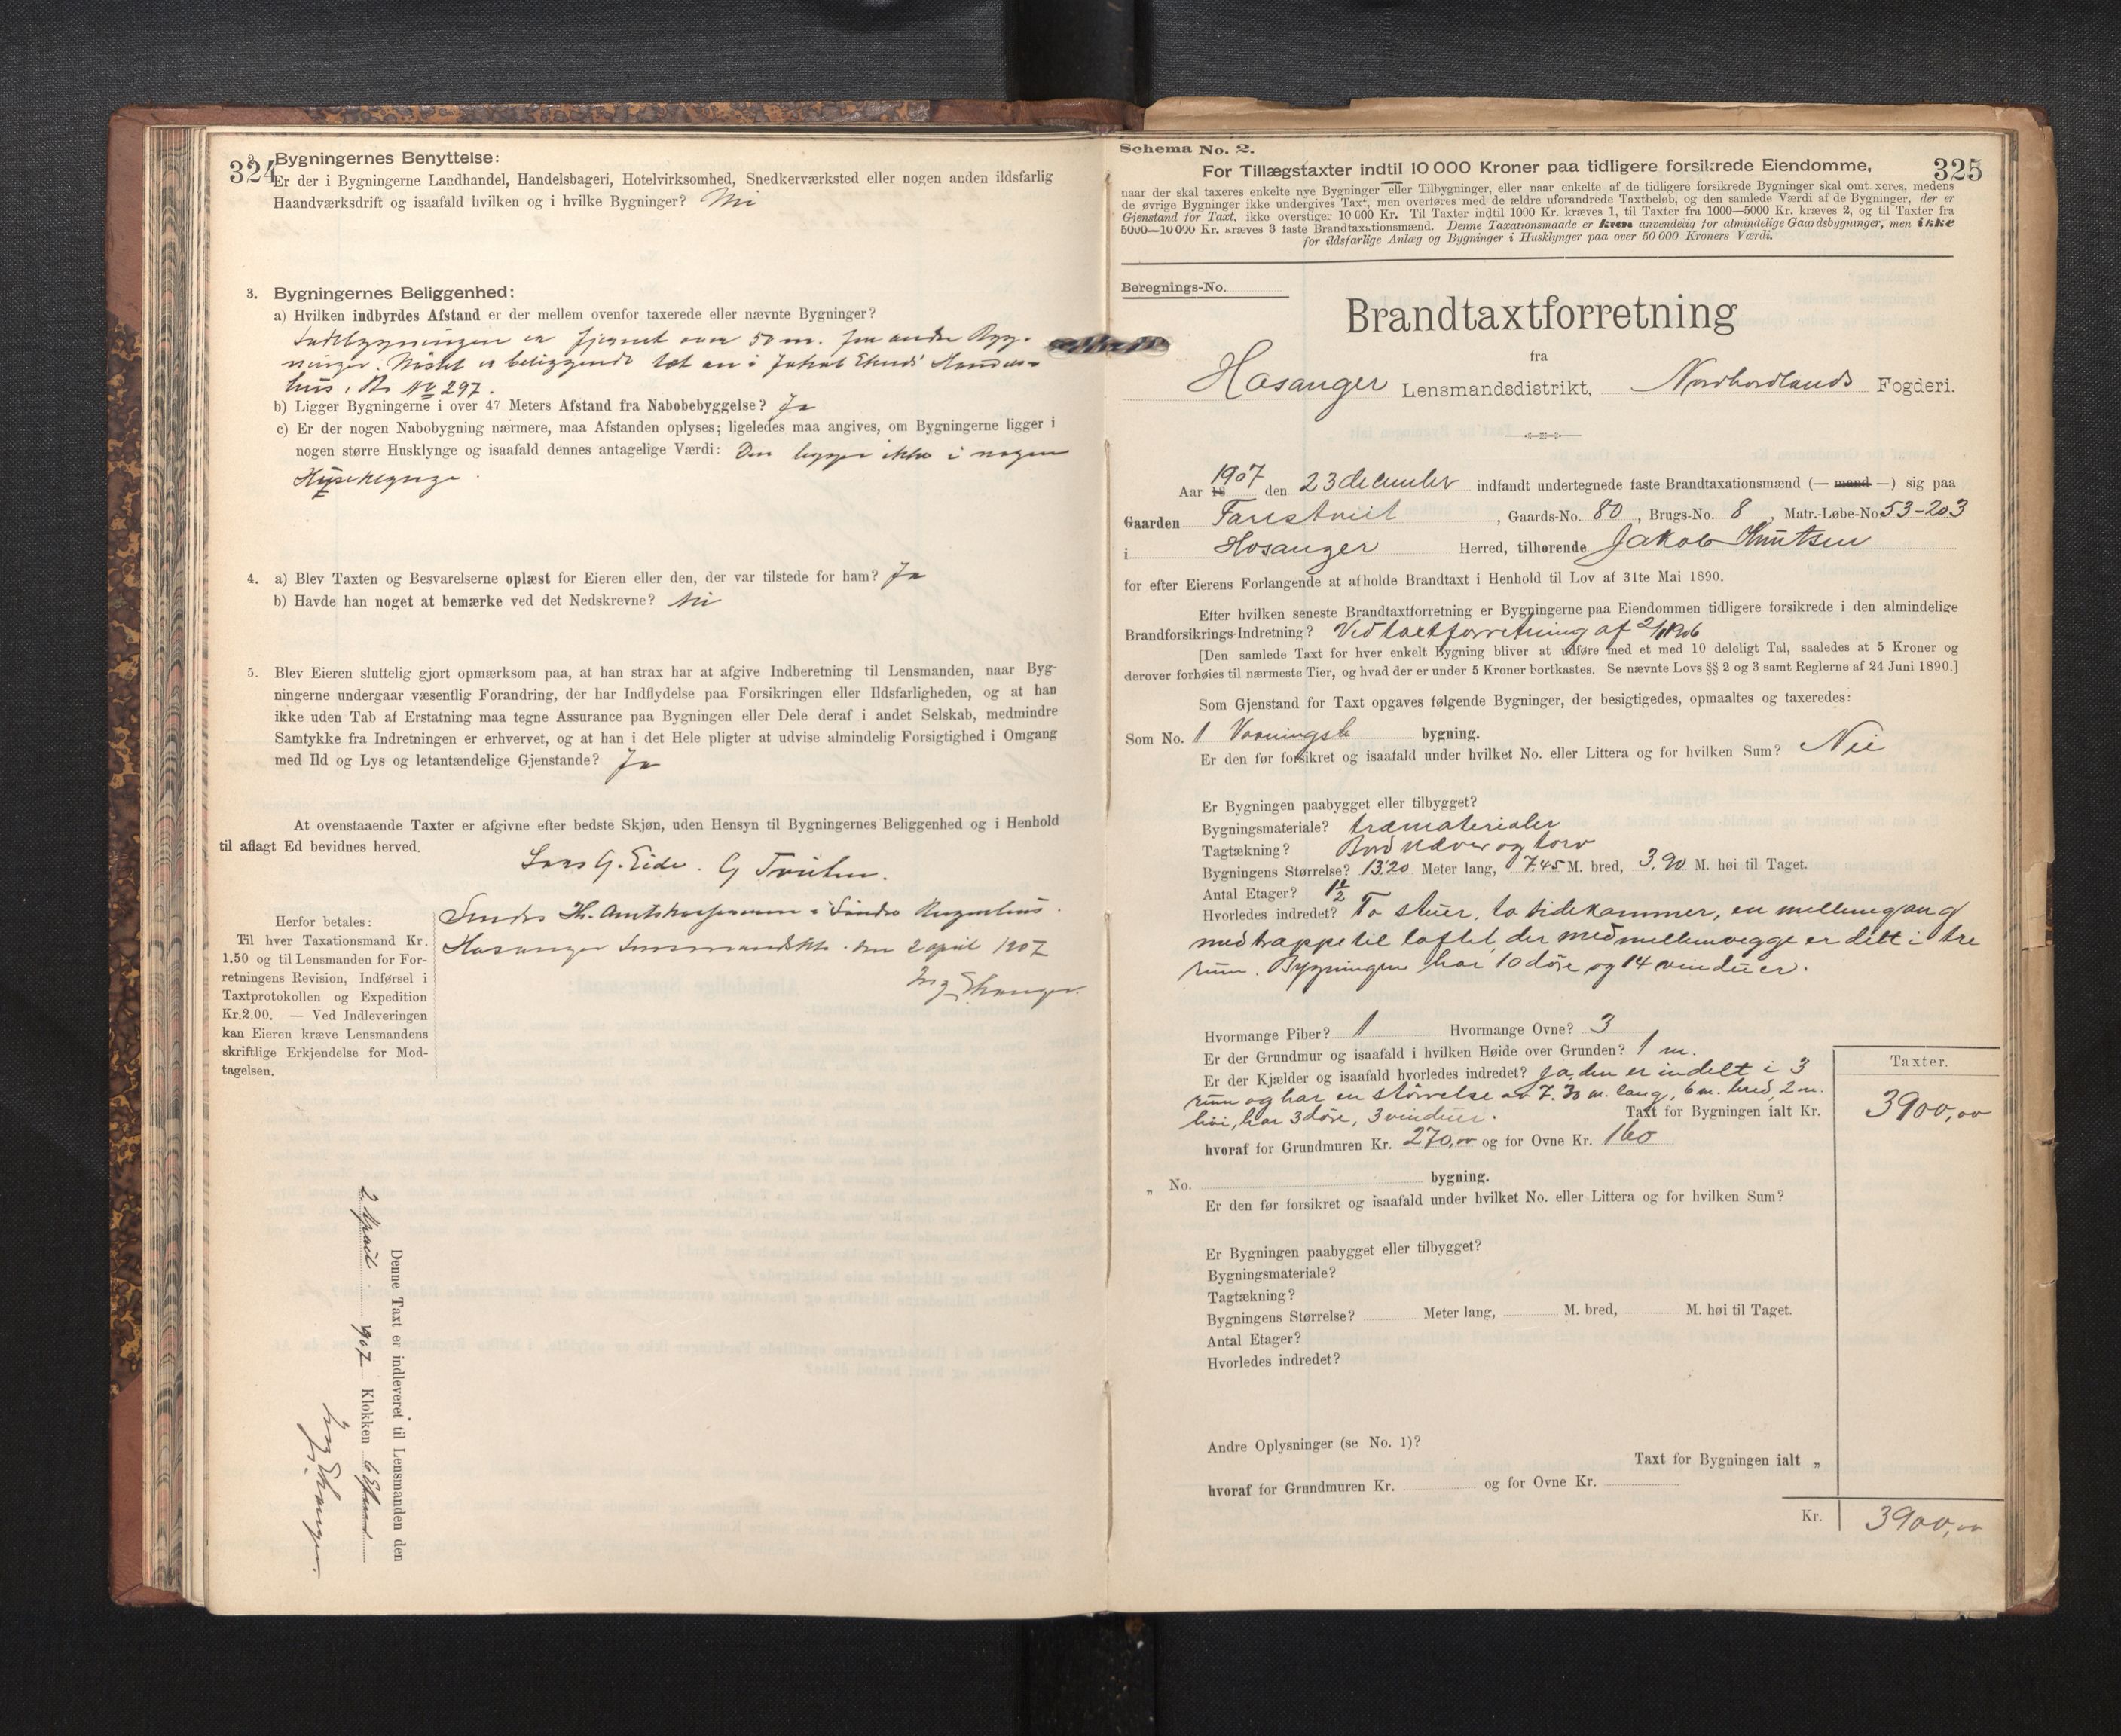 324
2. Bygningernes Benyttelse:
Er der i Bygningerne Landhandel, Handelsbageri, Hotelvirksomhed, Snedkerværksted eller nogen anden ildsfarlig
Haandværksdrift og isaafald hvilken og i hvilke Bygninger? Nei
3. Bygningernes Beliggenhed:
a) Hvilken indbyrdes Afstand er der mellem ovenfor taxerede eller nævnte Bygninger?
er fjernet over 50 m. fra andre Byg-
ninger. Nøstet er beliggende tæt an i Jakob
hus, Br. No 297.
b) Ligger Bygningerne i over 47 Meters Afstand fra Nabobebyggelse? Ja
c) Er der nogen Nabobygning nærmere, maa Afstanden oplyses; ligeledes maa angives, om Bygningerne ligger i
nogen større Husklynge og isaafald dennes antagelige Værdi: Den ligger ikke i nogen
Huseklynge.
4. a) Blev Taxten og Besvarelserne oplæst for Eieren eller den, der var tilstede for ham? Ja
b) Havde han noget at bemærke ved det Nedskrevne? Nei
5. Blev Eieren sluttelig gjort opmærksom paa, at han strax har at afgive Indberetning til Lensmanden, naar Byg-
ningerne undergaar væsentlig Forandring, der har Indflydelse paa Forsikringen eller Ildsfarligheden, og at han
ikke uden Tab af Erstatning maa tegne Assurance paa Bygningen eller Dele deraf i andet Selskab, medmindre
Samtykke fra Indretningen er erhvervet, og at han i det Hele pligter at udvise almindelig Forsigtighed i Omgang
med Ild og Lys og letantændelige Gjenstande? Ja
At ovenstaaende Taxter er afgivne efter bedste Skjøn, uden Hensyn til Bygningernes Beliggenhed og i Henhold
til aflagt Ed bevidnes herved.
Lars G. Eide. G Tveiten.
Herfor betales:
Til hver Taxationsmand Kr.
1.50 og til Lensmanden for For-
retningens Revision, Indførsel i
Taxtprotokollen og Expedition
Kr.2.00. — Ved Indleveringen
kan Eieren kræve Lensmandens
skriftlige Erkjendelse for Mod-
tagelsen.
Sendes Hr. Amtskasserer i Søndre Bergenhus.
Hosanger den 2 april 1907
Denne Taxt er indleveret til Lensmanden den
2. April 1907 Klokken 6
325
Schema No. 2.
For Tillægstaxter indtil 10 000 Kroner paa tidligere forsikrede Eiendomme,
naar der skal taxeres enkelte nye Bygninger eller Tilbygninger, eller naar enkelte af de tidligere forsikrede Bygninger skal omtaxeres, medens
de øvrige Bygninger ikke undergives Taxt, men overføres med de ældre uforandrede Taxtbeløb, og den samlede Værdi af de Bygninger, der er
Gjenstand for Taxt, ikke overstiger 10 000 Kr. Til Taxter indtil 1000 Kr. kræves 1, til Taxter fra 1000—5000 Kr. kræves 2, og til Taxter fra
5000—10 000 Kr. kræves 3 faste Brandtaxationsmænd. Denne Taxationsmaade er kun anvendelig for almindelige Gaardsbygninger, men ikke
for ildsfarlige Anlæg og Bygninger i Husklynger paa over 50 000 Kroners Værdi.
Beregnings-No.
Brandtaxtforretning
fra
Hosanger Lensmandsdistrikt, Nordhordlands Fogderi.
Aar 1907 den 23 december indfandt undertegnede faste Brandtaxationsmænd (— mand —) sig paa
Gaarden Farestveit, Gaards-No. 80, Brugs-No. 8, Matr.-Løbe-No. 53-203
i Hosanger Herred, tilhørende Jakob Knutsen
for efter Eierens Forlangende at afholde Brandtaxt i Henhold til Lov af 31te Mai 1890.
Efter hvilken seneste Brandtaxtforretning er Bygningerne paa Eiendommen tidligere forsikrede i den almindelige
Brandforsikrings-Indretning? Ved taxtforretning af 2/11 1906
[Den samlede Taxt for hver enkelt Bygning bliver at udføre med et med 10 deleligt Tal, saaledes at 5 Kroner og
derover forhøies til nærmeste Tier, og hvad der er under 5 Kroner bortkastes. Se nævnte Lovs §§ 2 og 3 samt Reglerne af 24 Juni 1890.]
Som Gjenstand for Taxt opgaves følgende Bygninger, der besigtigedes, opmaaltes og taxeredes:
Som No. 1 Vaaningsh bygning.
Er den før forsikret og isaafald under hvilket No. eller Littera og for hvilken Sum? Nei
Er Bygningen paabygget eller tilbygget?
Bygningsmateriale? træmaterialer
Tagtækning? Bord næver og torv
Bygningens Størrelse? 13.20 Meter lang, 7.45 M. bred, 3.90 M. høi til Taget.
Antal Etager? 1 1/2
Hvorledes indredet? To stuer, to sidekammer, en mellemgang
med trappe til loftet, der med mellemvegge er delt i tre
rum. Bygningen har 10 døre og 14 vinduer.
Hvormange Piber? 1 Hvormange Ovne? 3
Er der Grundmur og isaafald i hvilken Høide over Grunden? 1 m.
Er der Kjælder og isaafald hvorledes indredet? Ja, den er inddelt i 3
rum og har en størrelse av 7.30 m. lang, 6 m. bred, 2 m.
høi, har 3 døre, 3 vinduer.
Taxter.
Taxt for Bygningen ialt Kr. 3900,00
hvoraf for Grundmuren Kr. 270,00 og for Ovne Kr. 160
„ No. bygning.
Er den før forsikret og isaafald under hvilket No. eller Littera og for hvilken Sum?
Er Bygningen paabygget eller tilbygget?
Bygningsmateriale?
Tagtækning?
Bygningens Størrelse? Meter lang, M. bred, M. høi til Taget.
Antal Etager?
Hvorledes indredet?
Andre Oplysninger (se No. 1)?
Taxt for Bygningen ialt „
hvoraf for Grundmuren Kr. og for Ovne Kr.
Kr. 3900,00